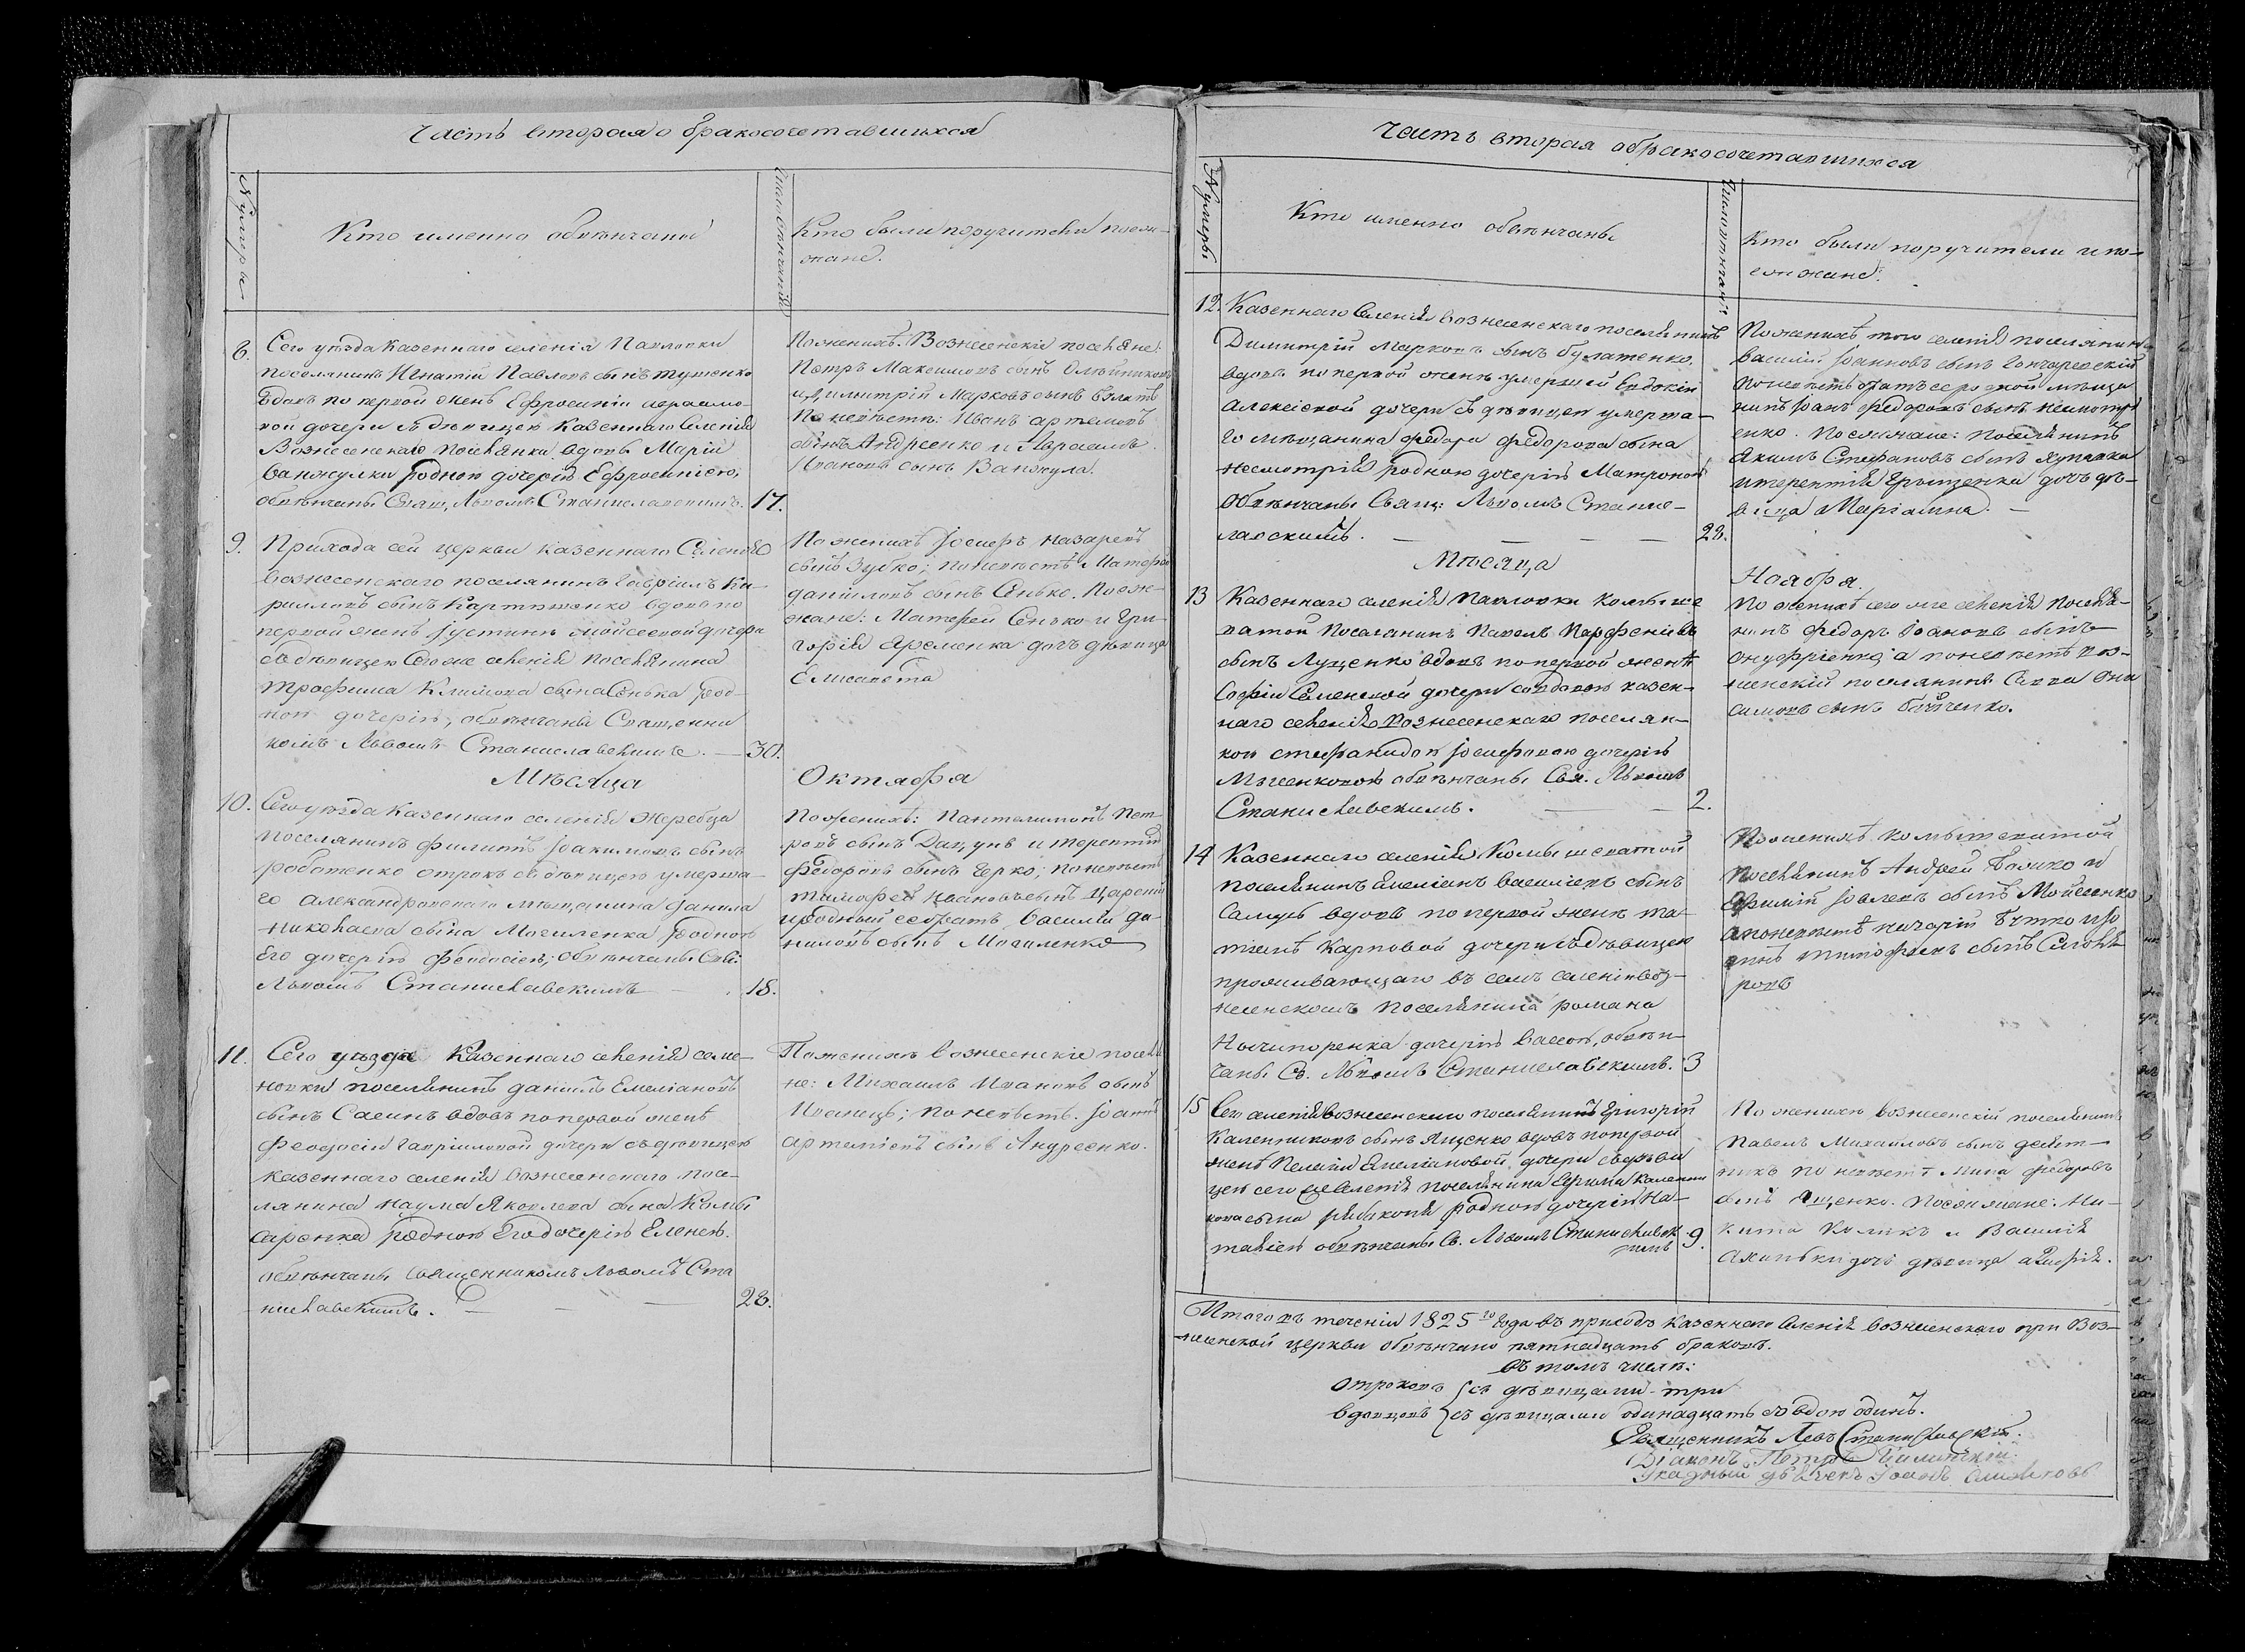 Часть вторая о бракосочетавшихся
Нумеры
Кто именно обвѣнчаны
Число вѣнчанія
Кто были поручители и поез-
жане.
8. Сего уѣзда Казеннаго селенія Павловки
поселянинъ Игнатій Павловъ сынъ Тушенко
вдовъ по первой женѣ Ефросиніи
вой дочери съ дѣвицею Казеннаго Селенія
Вознесенскаго поселянки вдовы Маріи
Ванжулки родною дочерію Ефросиніею,
обвѣнчаны Свящ. Львомъ Станиславскимъ. 17.
По женихѣ: Вознесенскіе поселяне:
Петръ Максимовъ сынъ Олейниковъ
и Димитрій Марковъ сынъ
По невѣстѣ: Иванъ Артемовъ
сынъ Андреенко и Авраамъ
Ивановъ сынъ Ванжула.
9. Прихода сей церкви Казеннаго Селенія
вознесенскаго поселянинъ Гавріилъ Ки-
риловъ сынъ вдовъ по
первой женѣ Іустинѣ Моисеевой дочери
съ дѣвицею сего же селенія поселянина
Трофима Климова сына Сенька род-
ною дочерію, обвѣнчаны Священни
комъ Львомъ Станиславскимъ. 30.
По женихѣ Іосифъ Назаревъ
сынъ Зубко; по невѣстѣ Матфей
Даниловъ сынъ Сенько. Поез-
жане: Матфей Сенько и Гри-
горія Яременка дочь дѣвица
Елисавета
Мѣсяца Октября
10. Сего уѣзда Казеннаго селенія Жеребца
поселянинъ Филиппъ Іоакимовъ сынъ
Работенко отрокъ съ дѣвицею умерша-
го Александровскаго мѣщанина Данила
Николаева сына Могиленка родною
его дочерію Феодосіею, обвѣнчаны Свящ.
Львомъ Станиславскимъ 18.
По женихѣ: Пантелимонъ Пет-
ровъ сынъ и Терентій
Федоровъ сынъ Герко; по невѣстѣ
Тимофей Ивановъ сынъ
и родный ее братъ Василій Да-
ниловъ сынъ Могиленко
11. Сего уѣзда Казеннаго селенія Семе-
новки поселянинъ Даніилъ Емеліановъ
сынъ Саенъ вдовъ по первой женѣ
Феодосіи Гавріиловой дочери съ дѣвицею
казеннаго селенія Вознесенскаго посе-
лянина Наума Яковлева сына Комы
саренка родною его дочерію Еленою.
обвѣнчаны священникомъ Львомъ Ста
ниславскимъ. 28.
По женихѣ вознесенскіе поселя
не: Михаилъ Ивановъ сынъ
Иванець; по невѣстѣ: Іоаннъ
Артеміевъ сынъ Андреенко.
Часть вторая о бракосочетавшихся
Нумеры
Кто именно обвѣнчаны
Число вѣнчанія
Кто были поручители и по-
езжане.
12. Казеннаго Селенія вознесенскаго поселянинъ
Димитрій Марковъ сынъ Булатенко,
вдовъ по первой женѣ умершей Евдокіи
Алексіевой дочери съ дѣвицею умерша-
го мѣщанина Федора Федорова сына
родною дочерію Матроною
обвѣнчаны Свящ: Львомъ Станис-
лавскимъ. 28.
По женихѣ того селенія поселянинъ
Василій Іоанновъ сынъ
по невѣстѣ братъ ее родной мѣща
нинъ Іоанъ Федоровъ сынъ
енко. Поезжане: поселянинъ
Якимъ Стефановъ сынъ
и Терентія Грыщенка дочь дѣ-
вица Маріамна.
Мѣсяца Ноября.
13 Казеннаго селенія Павловки Камыше
ватой поселянинъ Павелъ Парфеніевъ
сынъ Луценко вдовъ по первой женѣ
Софіи Семеновой дочери со вдовою казен-
наго селенія Вознесенскаго поселян-
кою Стефанидою Іосифовою дочерію
обвѣнчаны Свя. Львомъ
Станиславскимъ. 2.
По женихѣ сего же селенія поселя-
нинъ Федоръ Іоановъ сынъ
Онуфріенко, а по невѣстѣ воз-
несенскій поселянинъ Савва
сынъ
14 Казеннаго селенія Камышеватой
поселянинъ Емеліанъ Василіевъ сынъ
Самусь вдовъ по первой женѣ Та-
тіанѣ Карповой дочери съ дѣвицею
проживающаго въ семъ селеніи воз-
несенскомъ поселянина Романа
Нычипоренка дочерію Вассою, обвѣн-
чаны Св. Львомъ Станиславскимъ. 3
По женихѣ Камышеватой
поселянинъ Андрей и
Ефимій сынъ Мойсеенко
а по невѣстѣ Бутко и
Тимофеевъ сынъ
ровъ
15 Сего селенія вознесенскаго поселянинъ Григорій
Калениковъ сынъ Ященко вдовъ по первой
женѣ Пелагіи Емеліановой дочери съ дѣви
цею сего селенія поселянина Ефима
сына родною дочерію На-
таліею обвѣнчаны Св. Львомъ Станиславск
имъ 9.
По женихѣ вознесенскій поселянинъ
Павелъ Михайловъ сынъ
по невѣстѣ Мина Федоровъ
сынъ Ященко. Поезжане: Ни-
кита и Василія
дочь дѣвица
Итого въ теченіи 1825го года въ приходѣ Казеннаго Селенія вознесенскаго при Воз-
несенской церкви обвѣнчано пятнадцать браковъ.
въ томъ числѣ:
Отроковъ съ дѣвицами три
вдовцовъ съ дѣвицами одинадцать съ вдовою одинъ.
Священникъ Левъ Станиславскій.
Діаконъ Петръ
Указный дьячекъ Іоанъ